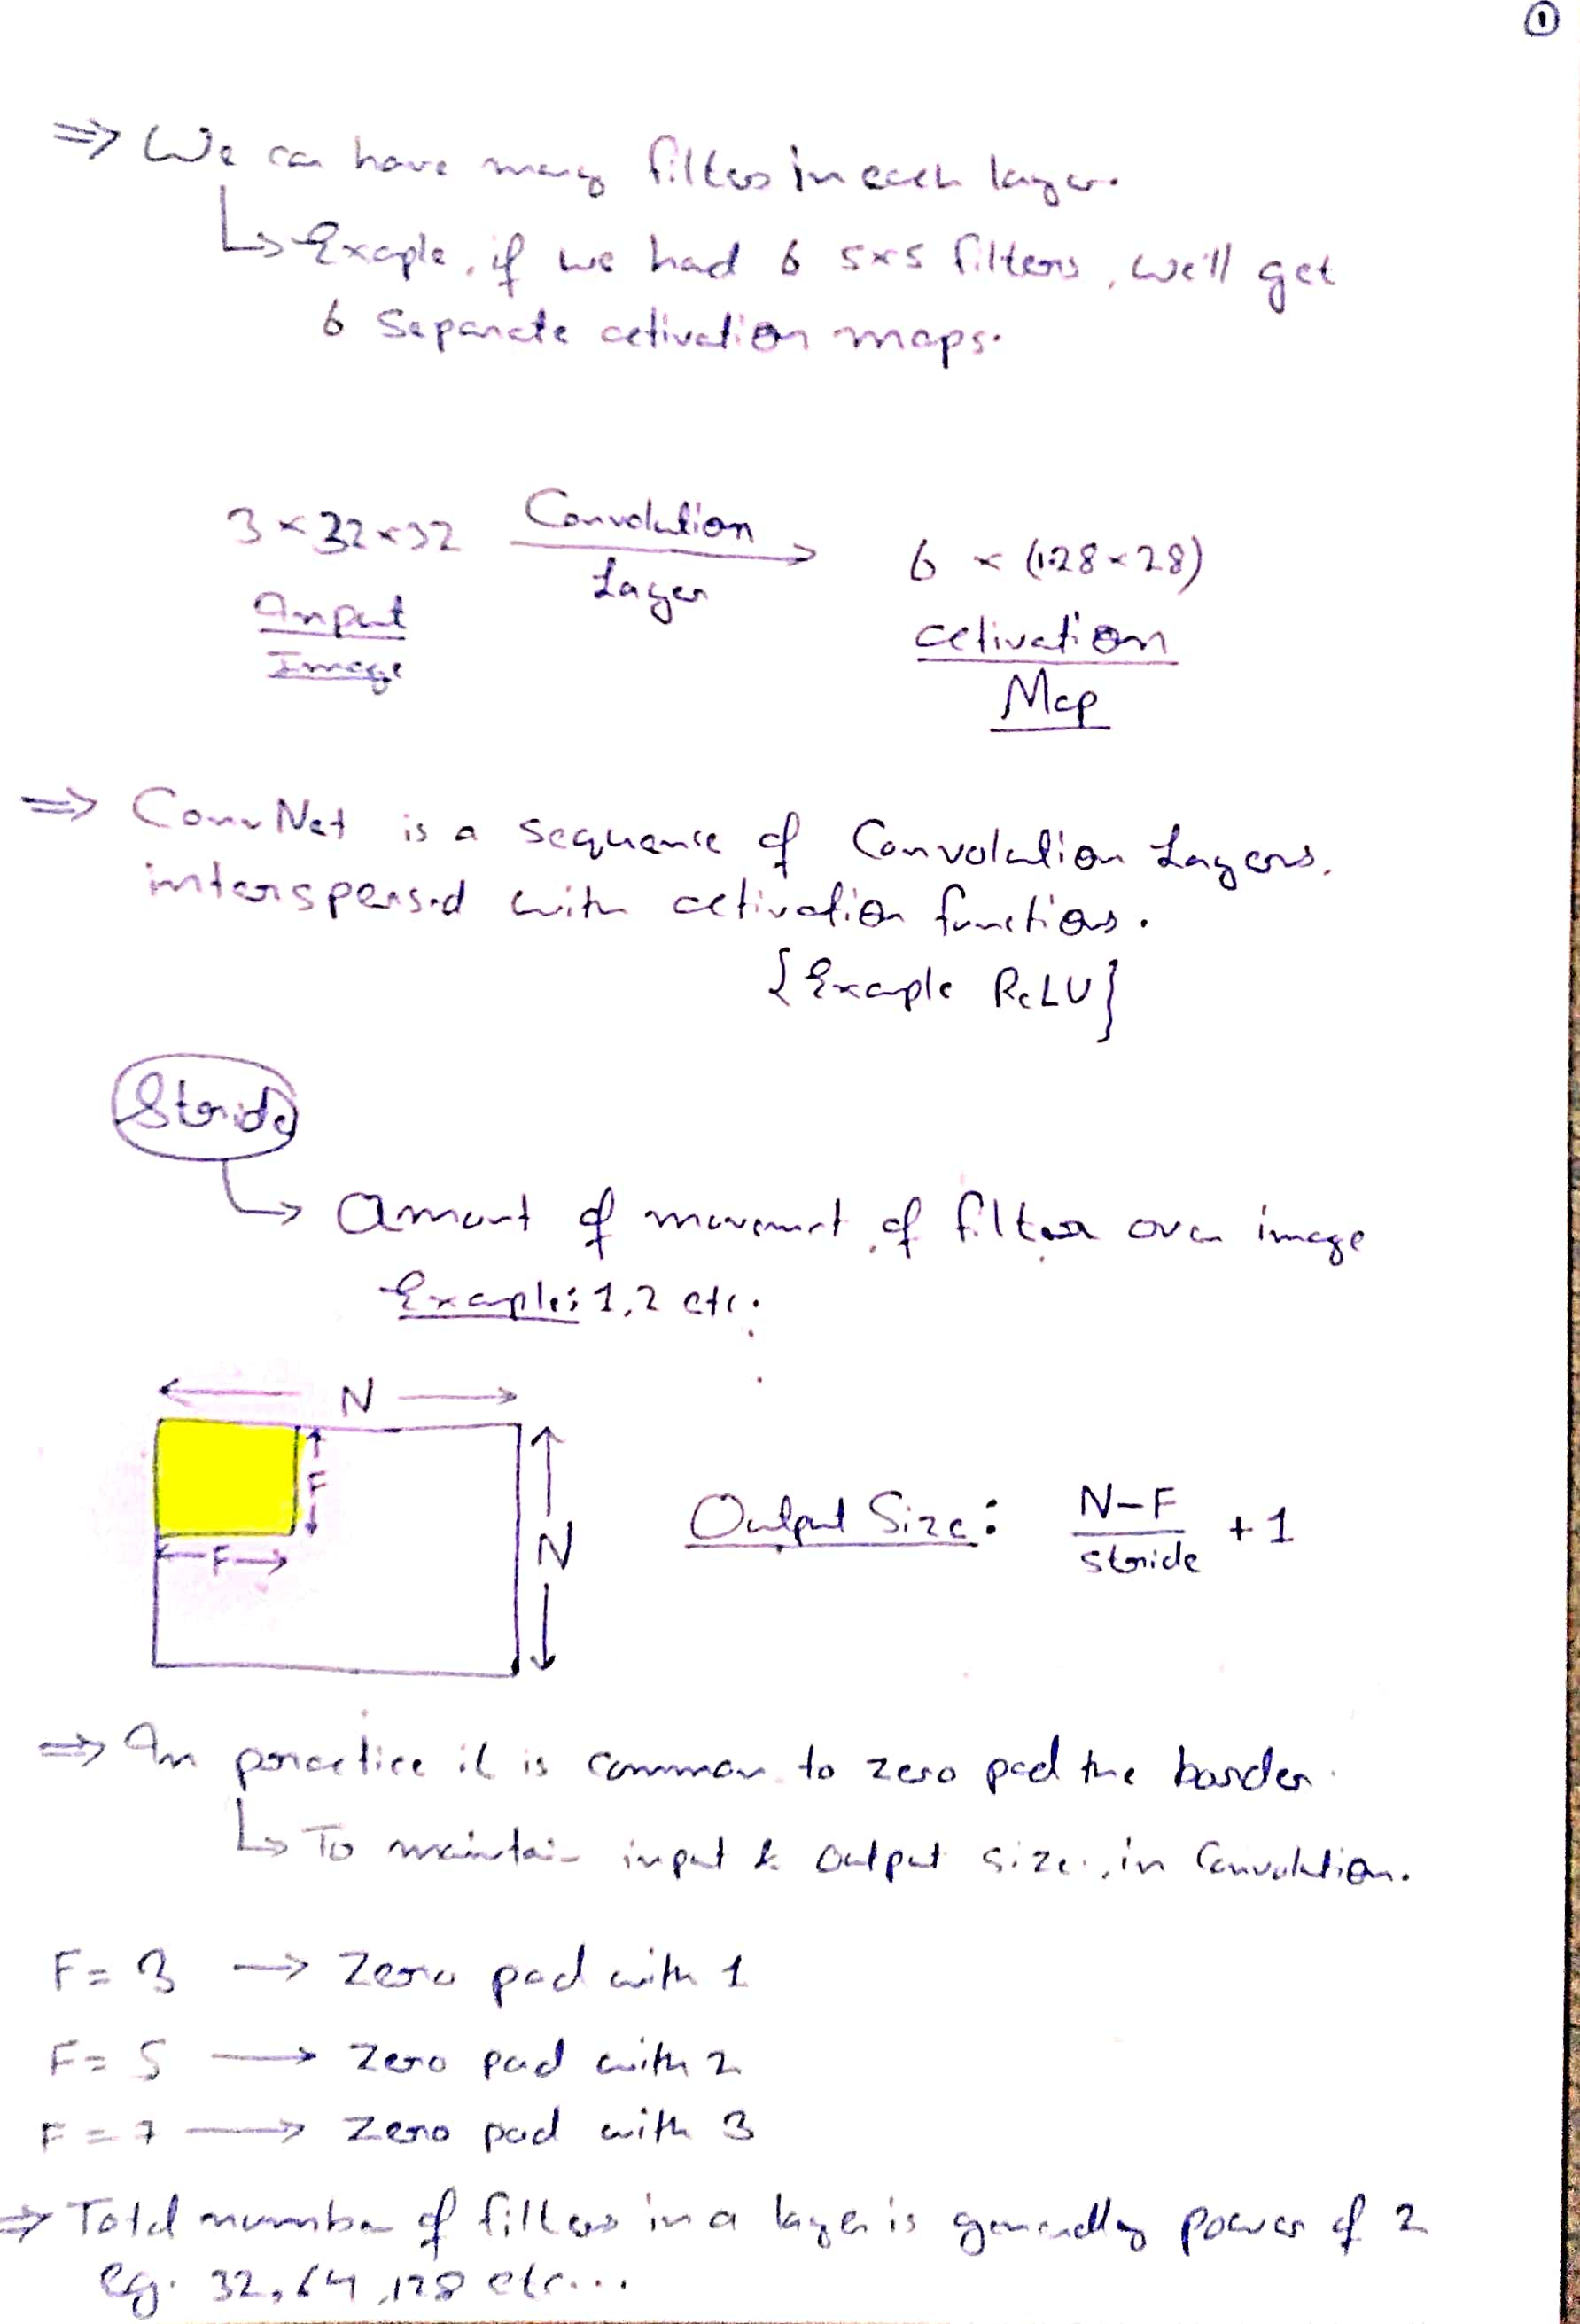 ①
⇒ We can have many filters in each layer.
↳ Exaple, if we had 6 5×5 filters, we'll get
6 Separate activation maps.
3×32×32 Convolution Layer → 6 × (1×28×28)
Input Image
activation Map
⇒ ConvNet is a sequence of Convolution Layers,
interspersed with activation functions.
{Example ReLU}
Stride
↳ Amount of movement of filter over image
Example: 1,2 etc.
← N →
F
N
← F →
Output Size: (N-F)/stride + 1
⇒ In practice it is common to zero pad the border.
↳ To maintain input & output size, in Convolution.
F = 3 → Zero pad with 1
F = 5 → Zero pad with 2
F = 7 → Zero pad with 3
⇒ Total number of filters in a layer is generally power of 2
eg. 32, 64, 128 etc...